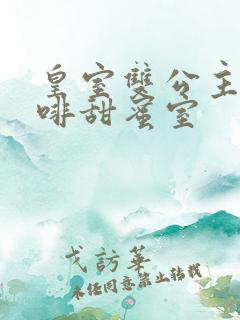 皇室雙公主
啡甜蜜室
戈訪華
未經同意禁止轉載